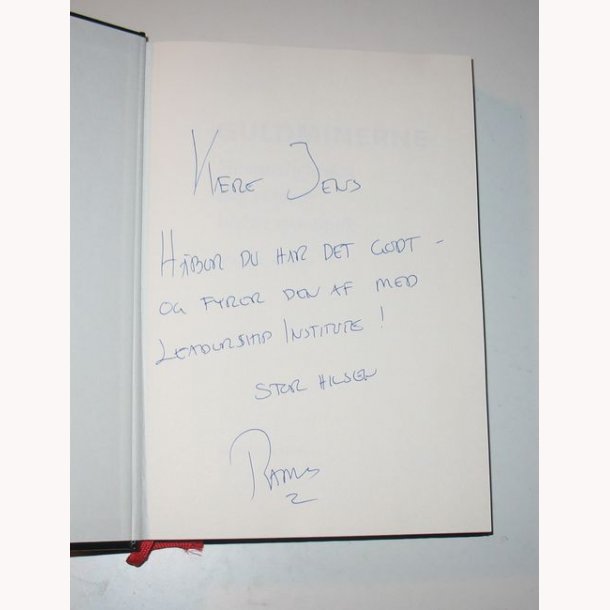 Kære Jens
Håber du har det godt –
og fyrer den af med
Leadership Institute!
Stor hilsen